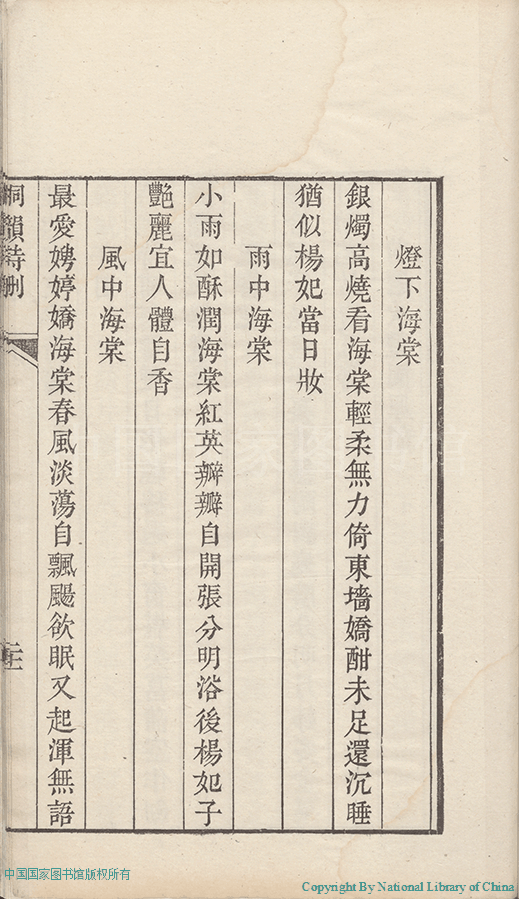 燈下海棠
銀燭高燒看海棠輕柔無力倚東墻嬌酣未足還沉睡
猶似楊妃當日妝
雨中海棠
小雨如酥潤海棠紅英瓣瓣自開張分明浴後楊妃子
艷麗宜人體自香
風中海棠
最愛娉婷嬌海棠春風淡蕩自飄颺欲眠又起渾無語
桐韻詩刪
中国国家图书馆版权所有
Copyright By National Library of China